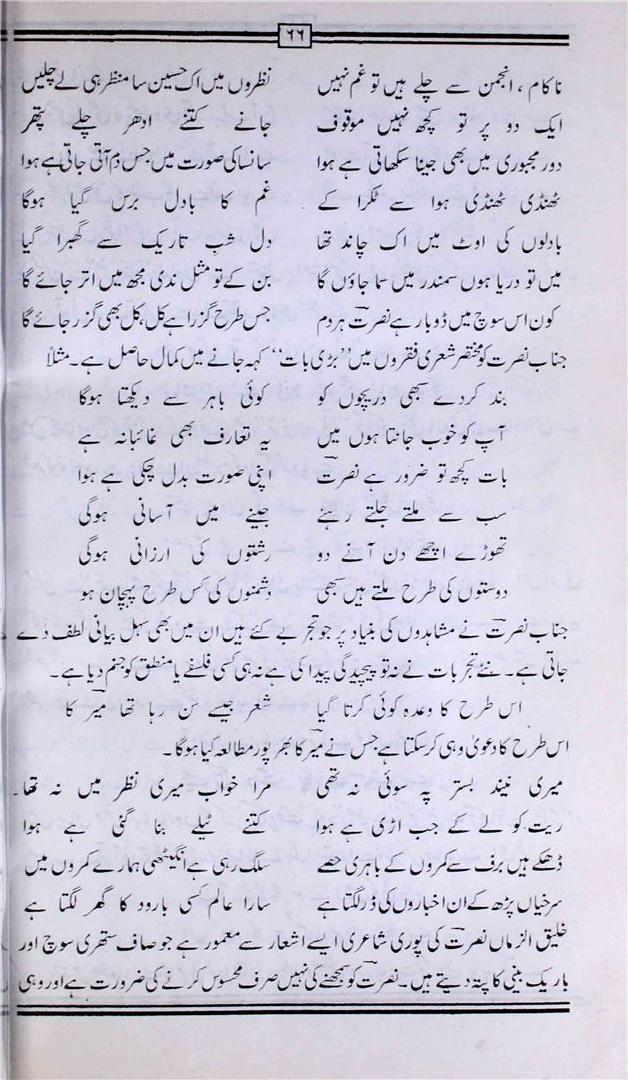 ۶۶
ناکام ، انجمن سے چلے ہیں تو غم نہیں نظروں میں اک حسین سا منظر ہی لے چلیں
ایک دو پر تو کچھ نہیں موقوف جانے کتنے ادھر چلے پتھر
دور مجبوری میں بھی جینا سکھاتی ہے ہوا سانسا کی صورت میں جس دم آتی جاتی ہے ہوا
ٹھنڈی ٹھنڈی ہوا سے ٹکرا کے غم کا بادل برس گیا ہوگا
بادلوں کی اوٹ میں اک چاند تھا دل شبِ تاریک سے گھبرا گیا
میں تو دریا ہوں سمندر میں سما جاؤں گا بن کے تو مثل ندی مجھ میں اتر جائے گا
کون اس سوچ میں ڈوبا رہے نصرتؔ ہر دم جس طرح گزرا ہے کل، کل بھی گزر جائے گا
جناب نصرت کو مختصر شعری فقروں میں ’’بڑی بات‘‘ کہہ جانے میں کمال حاصل ہے۔ مثلاً
بند کردے سبھی دریچوں کو کوئی باہر سے دیکھتا ہوگا
آپ کو خوب جانتا ہوں میں یہ تعارف بھی غائبانہ ہے
بات کچھ تو ضرور ہے نصرتؔ اپنی صورت بدل چکی ہے ہوا
سب سے ملتے جلتے رہئے جینے میں آسانی ہوگی
تھوڑے اچھے دن آنے دو رشتوں کی ارزانی ہوگی
دوستوں کی طرح ملتے ہیں سبھی دشمنوں کی کس طرح پہچان ہو
جناب نصرتؔ نے مشاہدوں کی بنیاد پر جو تجربے کئے ہیں ان میں بھی سہل بیانی لطف دے
جاتی ہے۔ نئے تجربات نے نہ تو پیچیدگی پیدا کی ہے نہ ہی کسی فلسفے یا منطق کو جنم دیا ہے۔
اس طرح کا وعدہ کوئی کرتا گیا شعر جیسے سن رہا تھا میرؔ کا
اس طرح کا دعویٰ وہی کرسکتا ہے جس نے میرؔ کا بھرپور مطالعہ کیا ہوگا۔
میری نیند بستر پہ سوئی نہ تھی مرا خواب میری نظر میں نہ تھا۔
ریت کو لے کے جب اڑی ہے ہوا کتنے ٹیلے بنا گئی ہے ہوا
ڈھکے ہیں برف سے کمروں کے باہری حصے سلگ رہی ہے انگیٹھی ہمارے کمروں میں
سرخیاں پڑھ کے ان اخباروں کی ڈر لگتا ہے سارا عالم کسی بارود کا گھر لگتا ہے
خلیق الزماں نصرتؔ کی پوری شاعری ایسے اشعار سے معمور ہے جو صاف ستھری سوچ اور
باریک بینی کا پتہ دیتے ہیں۔ نصرتؔ کو سمجھنے کی نہیں صرف محسوس کرنے کی ضرورت ہے اور وہی